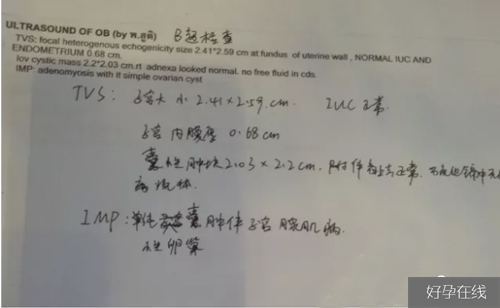 ULTRASOUND OF OB (by พ.สูติ) B超检查
TVS: focal heterogenous echogenicity size 2.41*2.59 cm.at fundus of uterine wall , NORMAL IUC AND
ENDOMETRIUM 0.68 cm.
lov cystic mass 2.2*2.03 cm.rt adnexa looked normal. no free fluid in cds.
IMP: adenomyosis with lt simple ovarian cyst
TVS: 子宫大小 2.41×2.59 cm. IUC 正常.
子宫内膜厚 0.68 cm
囊性肿块 2.03 × 2.2 cm. 附件 正常.
流体.
IMP: 单纯 囊肿伴子宫腺肌病.
性卵巢
好孕在线